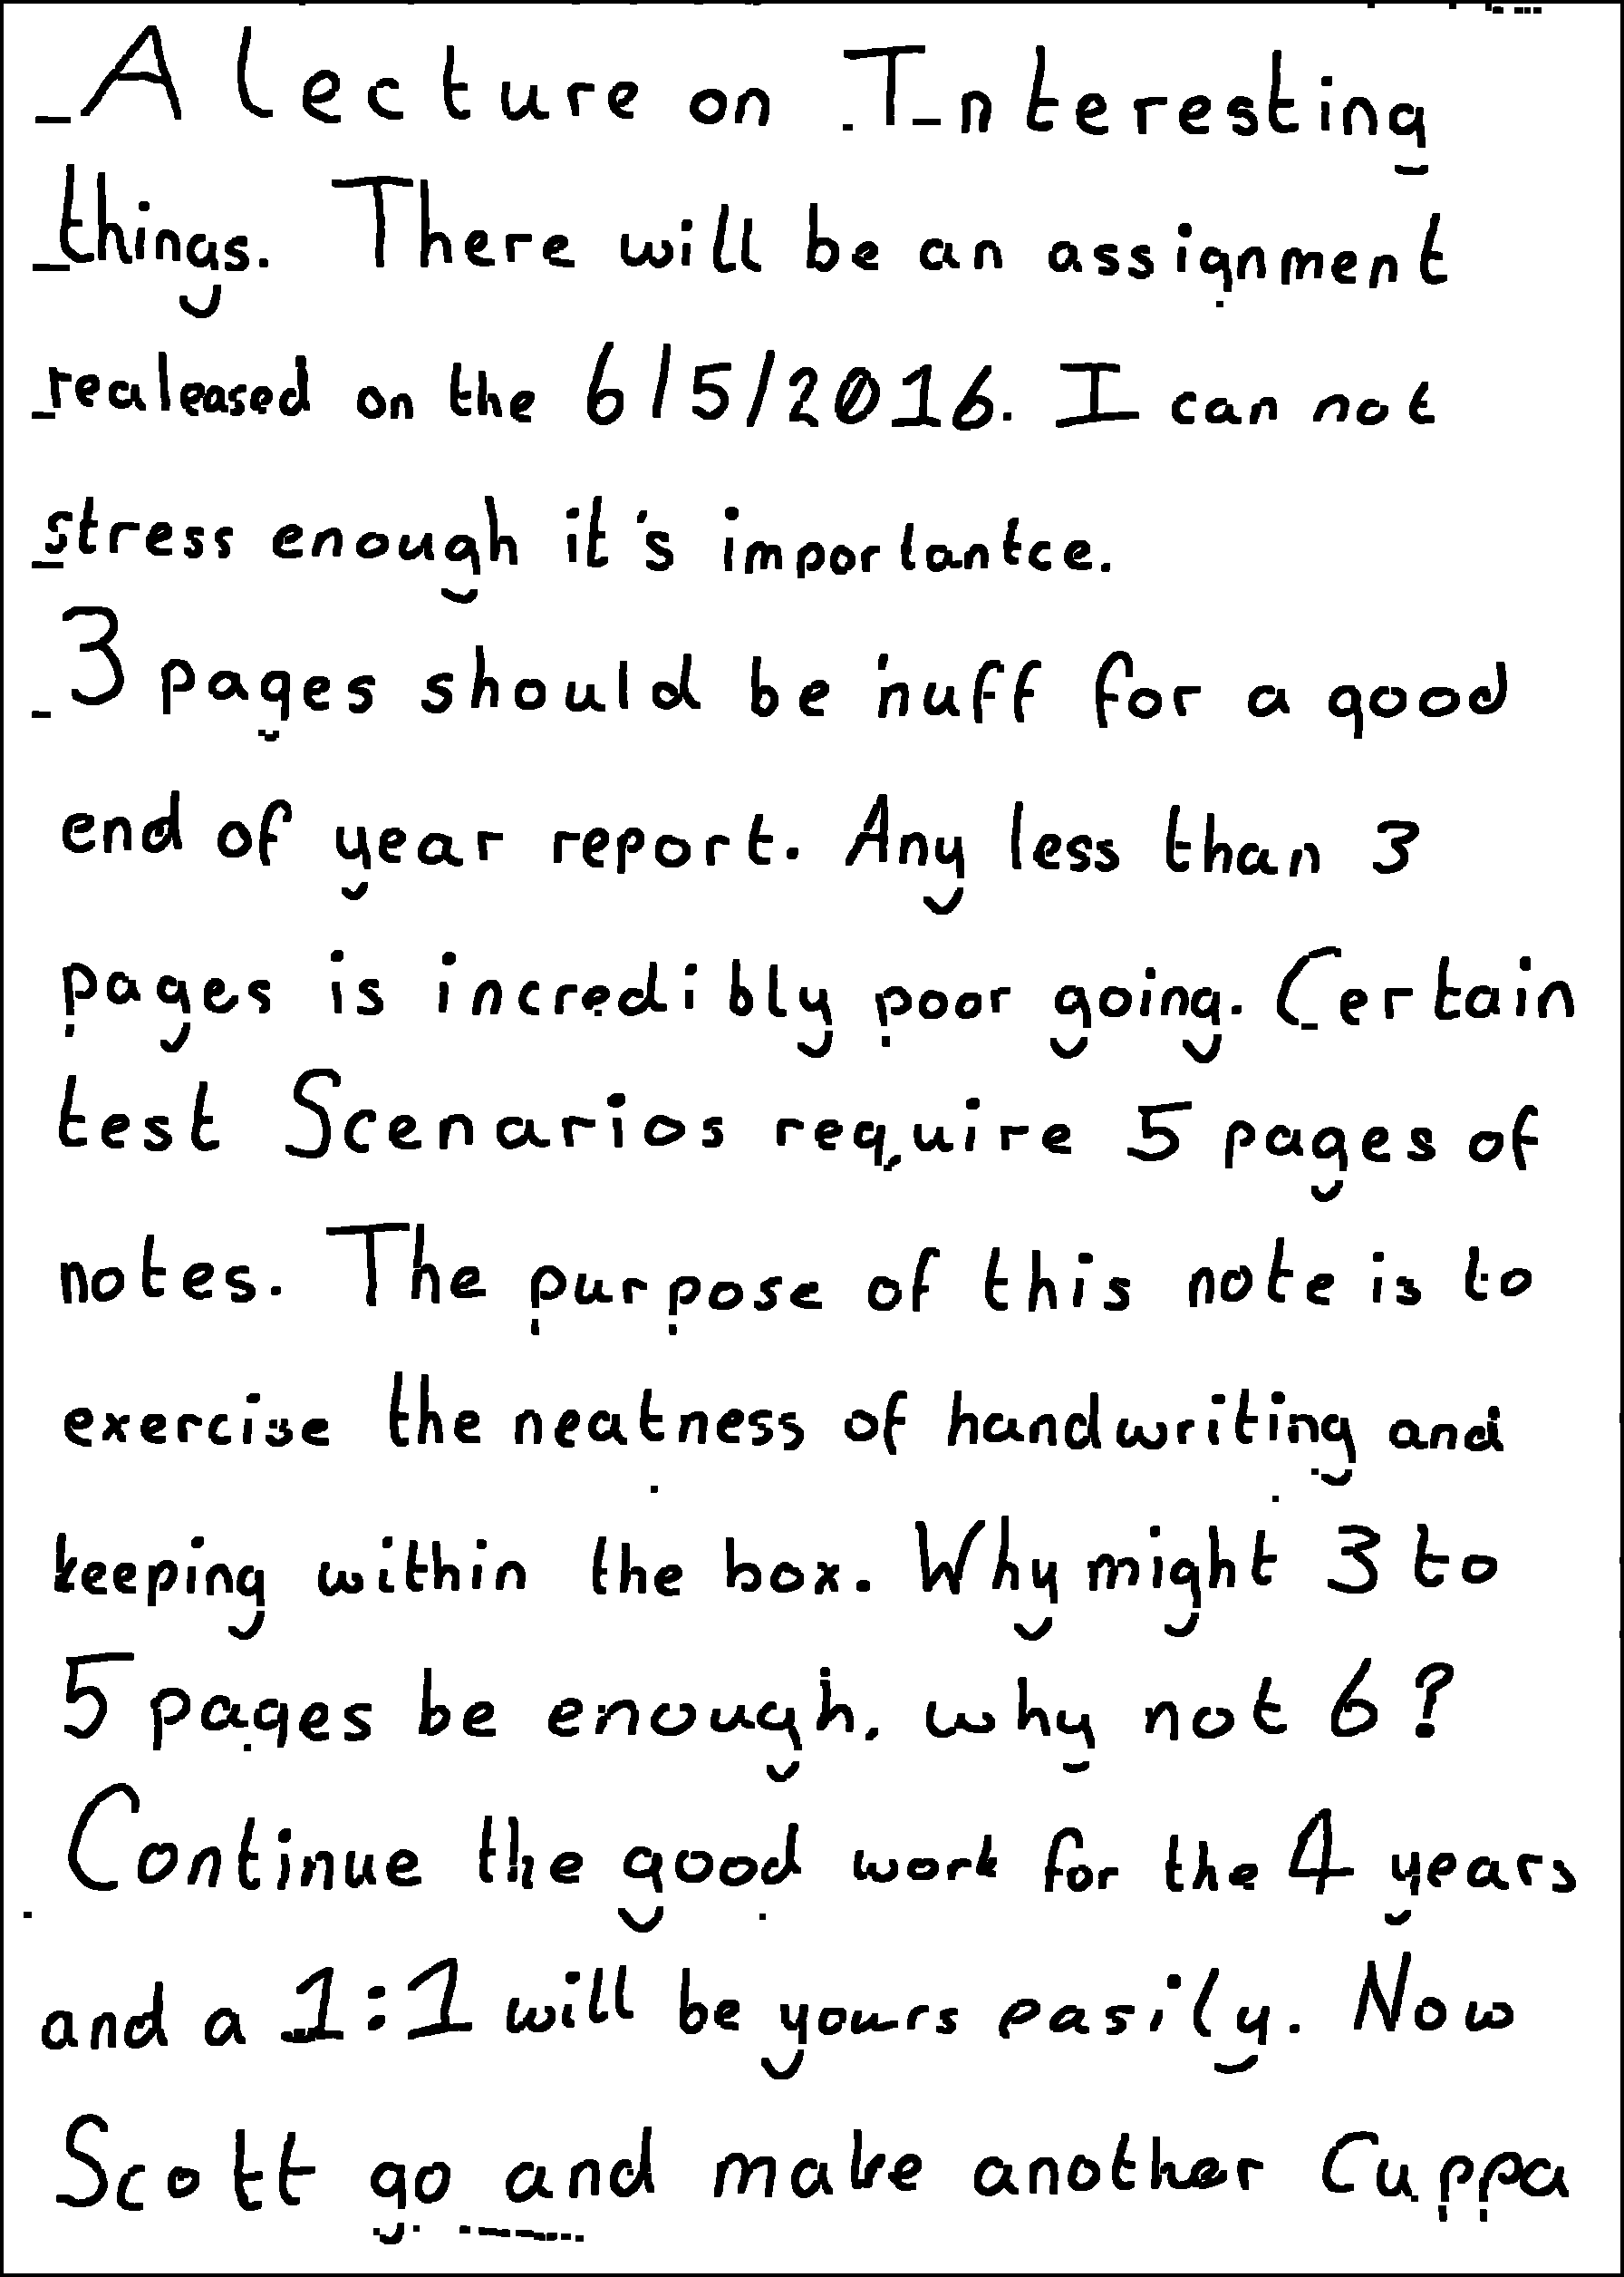 A lecture on Interesting
things. There will be an assignment
realeased on the 6/5/2016. I can not
stress enough it's importantce.
3 pages should be nuff for a good
end of year report. Any less than 3
pages is incredibly poor going. Certain
test Scenarios require 5 pages of
notes. The purpose of this note is to
exercise the neatness of handwriting and
keeping within the box. Why might 3 to
5 pages be enough, why not 6?
Continue the good work for the 4 years
and a 1:1 will be yours easily. Now
Scott go and make another Cuppa